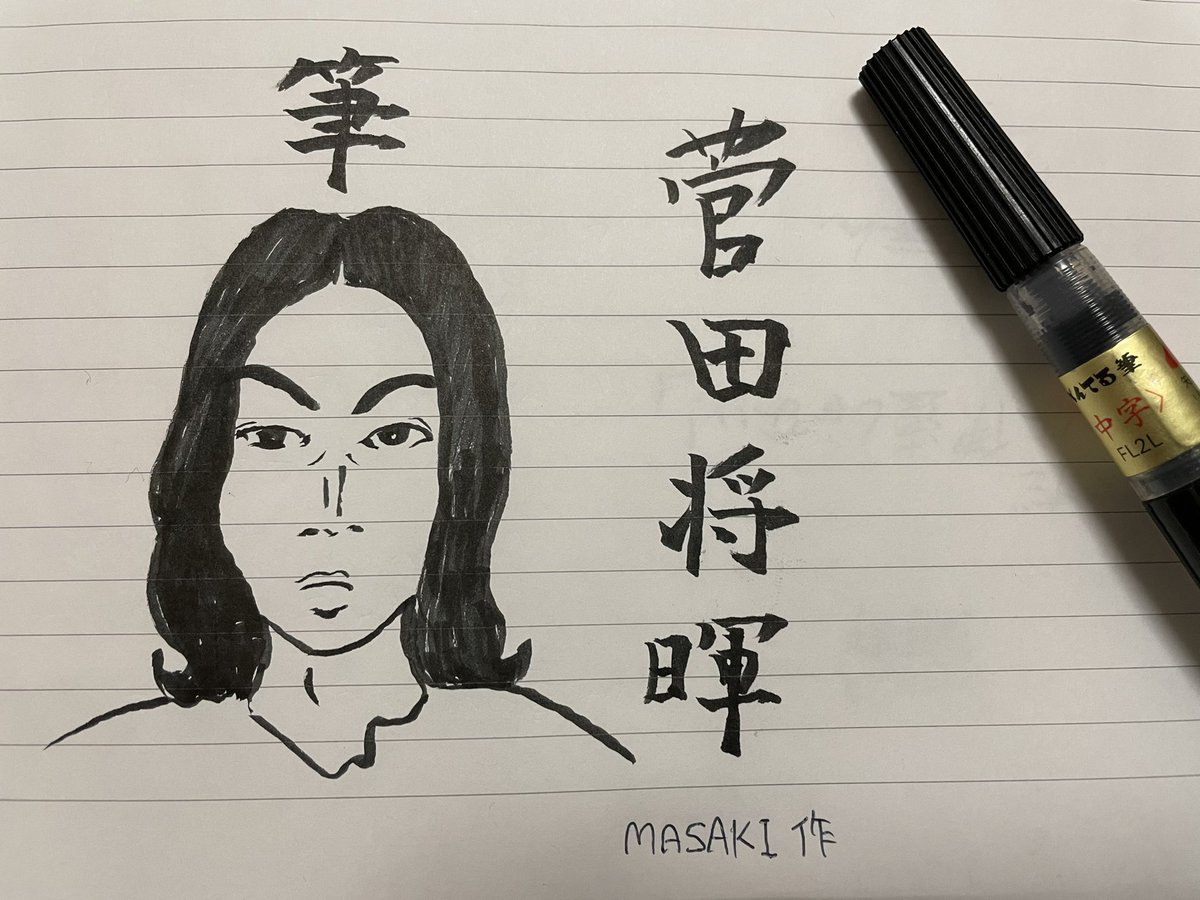 筆
菅田将暉
MASAKI 作
んてる筆
中字〉
FL2L